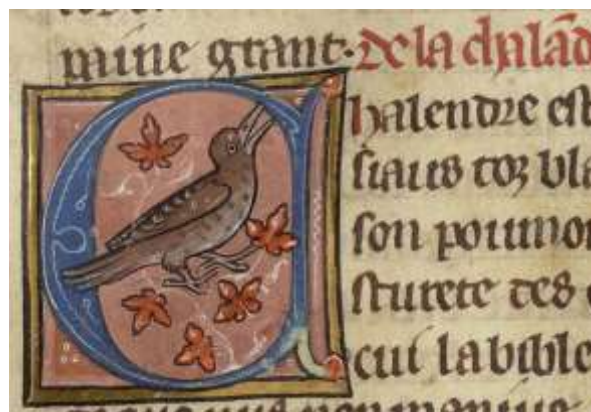 mine grant. De la chalād
Chalendre est
siaus toz bla
son poumon
sturete des
cui la bible